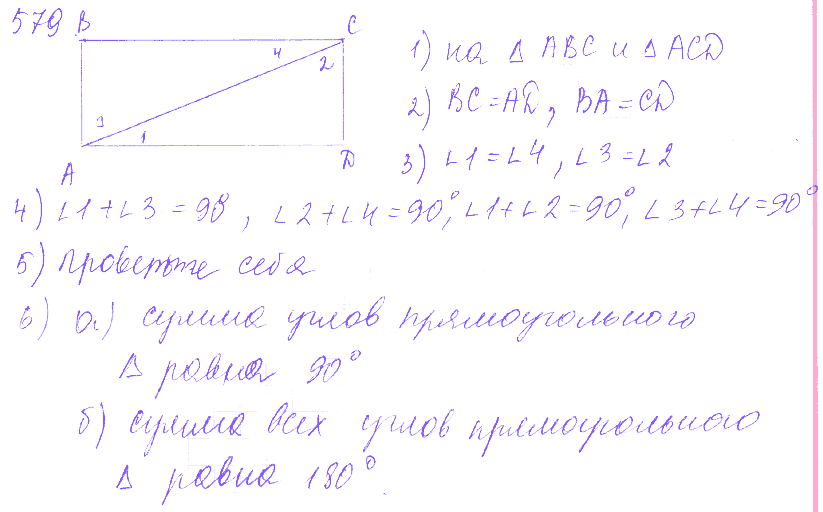 579 B C
4 2
3 1
A D
1) на Δ ABC и Δ ACD
2) BC = AD, BA = CD
3) ∠1 = ∠4, ∠3 = ∠2
4) ∠1 + ∠3 = 90°, ∠2 + ∠4 = 90°, ∠1 + ∠2 = 90°, ∠3 + ∠4 = 90°
5) Проверьте себя
6) а) сумма углов прямоугольного
Δ равна 90°
б) сумма всех углов прямоугольного
Δ равна 180°